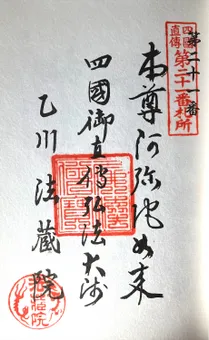 第二十一番
四國
直傳
第二十一番札所
本尊阿弥陀如来
四國御直傳弘法大師
乙川法蔵院